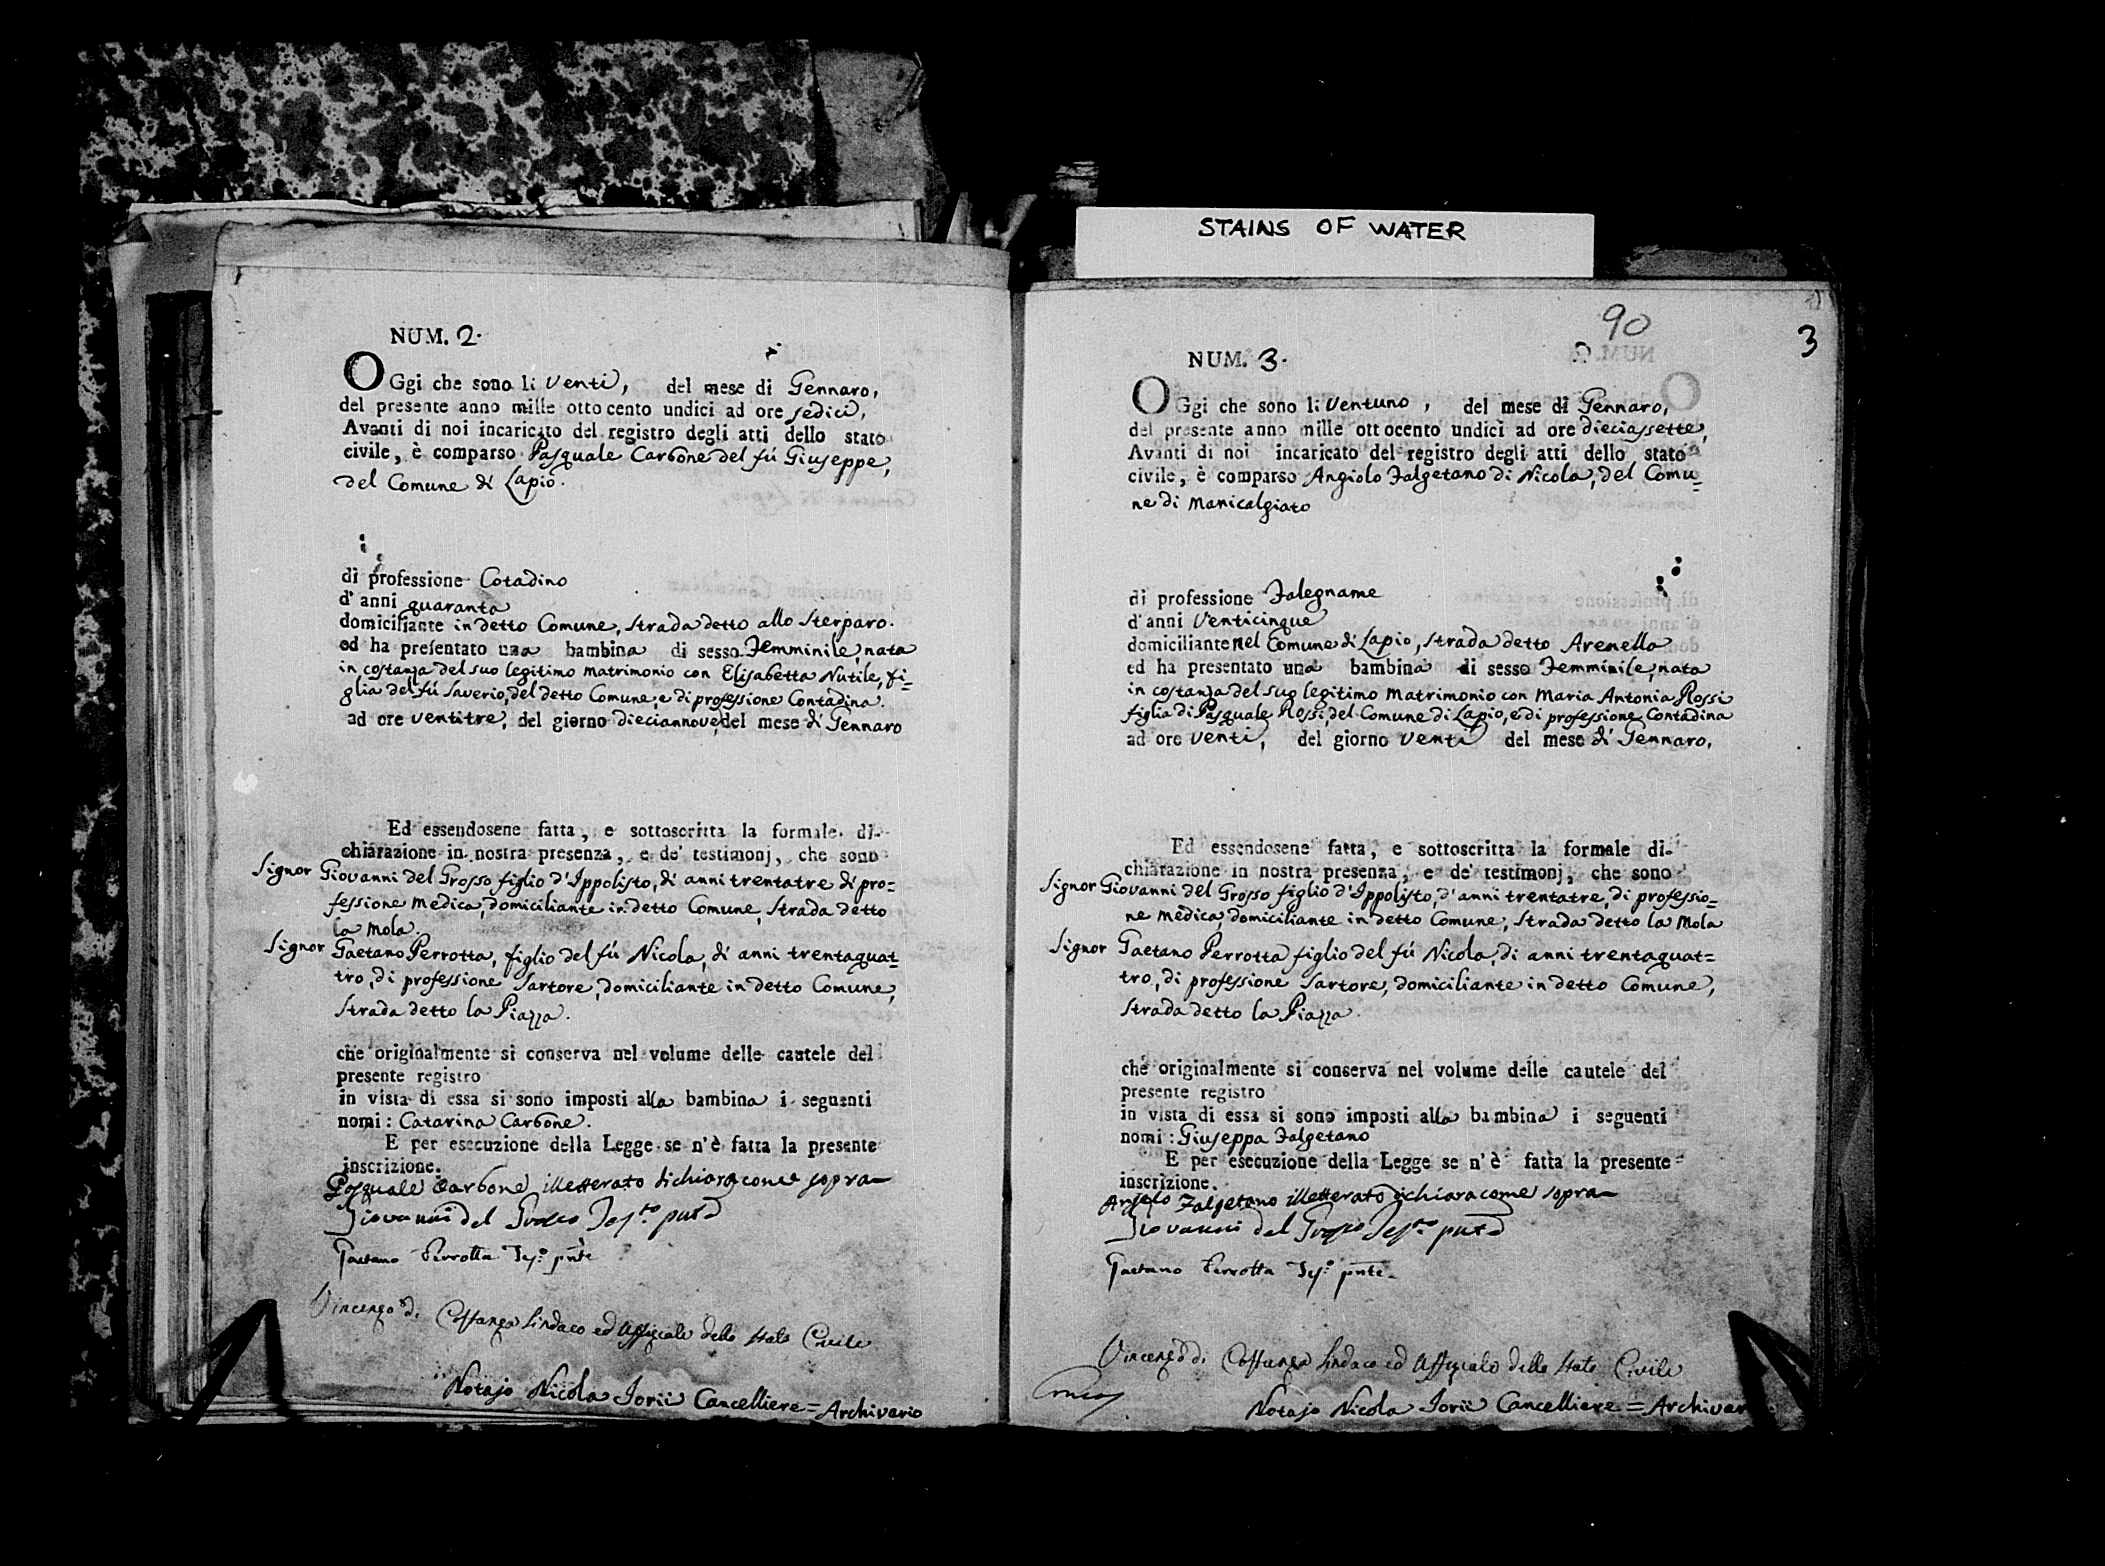 STAINS OF WATER
NUM. 2.
OGgi che sono li Venti, del mese di Gennaro,
del presente anno mille ottocento undici ad ore sedici,
Avanti di noi incaricato del registro degli atti dello stato
civile, è comparso Pasquale Carbone del fú Giuseppe,
del Comune di Lapio.
di professione Cotadino
d' anni quaranta
domiciliante in detto Comune, strada detto allo Sterparo.
ed ha presentato una bambina di sesso Femminile, nata
in costanza del suo legitimo Matrimonio con Elisabetta Nutile, fi=
glia del fú Saverio, del detto Comune, e di professione Contadina.
ad ore Ventitre, del giorno Dieciannove, del mese di Gennaro
Ed essendosene fatta, e sottoscritta la formale di-
chiarazione in nostra presenza, e de' testimonj, che sono
Signor Giovanni del Grosso figlio d'Ippolisto, di anni trentatre di pro=
fessione Medica, domiciliante in detto Comune, strada detto
la Mola.
Signor Gaetano Perrotta, figlio del fú Nicola, di anni trentaquat=
tro, di professione Sartore, domiciliante in detto Comune,
strada detto la Piazza.
che originalmente si conserva nel volume delle cautele del
presente registro
in vista di essa si sono imposti alla bambina i seguenti
nomi: Catarina Carbone.
E per esecuzione della Legge se n'è fatta la presente
inscrizione.
Pasquale Carbone illetterato dichiara come sopra
Giovanni del Grosso Tes.to pnte
Gaetano Perrotta Tes.o pnte
Vincenzo di Costanza Sindaco ed Uffiziale dello stato Civile
Notajo Nicola Jorii Cancelliere = Archivario
90
3
NUM. 3.
OGgi che sono li Ventuno, del mese di Gennaro,
del presente anno mille ottocento undici ad ore dieciassette,
Avanti di noi incaricato del registro degli atti dello stato
civile, è comparso Angiolo Falgetano di Nicola, del Comu=
ne di Manicalgiato
di professione Falegname
d'anni Venticinque
domiciliante nel Comune di Lapio, strada detto Arenella
ed ha presentato una bambina di sesso Femminile, nata
in costanza del suo legitimo Matrimonio con Maria Antonia Rossi
figlia di Pasquale Rossi, del Comune di Lapio, e di professione Contadina
ad ore Venti, del giorno Venti del mese di Gennaro,
Ed essendosene fatta, e sottoscritta la formale di-
chiarazione in nostra presenza, e de' testimonj, che sono
Signor Giovanni del Grosso figlio d'Ippolisto, d'anni trentatre, di professio=
ne Medica, domiciliante in detto Comune, strada detto la Mola
Signor Gaetano Perrotta figlio del fú Nicola, di anni trentaquat=
tro, di professione Sartore, domiciliante in detto Comune,
strada detto la Piazza.
che originalmente si conserva nel volume delle cautele del
presente registro
in vista di essa si sono imposti alla bambina i seguenti
nomi: Giuseppa Falgetano
E per esecuzione della Legge se n'è fatta la presente
inscrizione.
Angelo Falgetano illetterato dichiara come sopra
Giovanni del Grosso Tes.to pnte
Gaetano Perrotta Tes.o pnte.
Vincenzo di Costanza Sindaco ed Uffiziale dello stato Civile
Notajo Nicola Jorii Cancelliere = Archivar